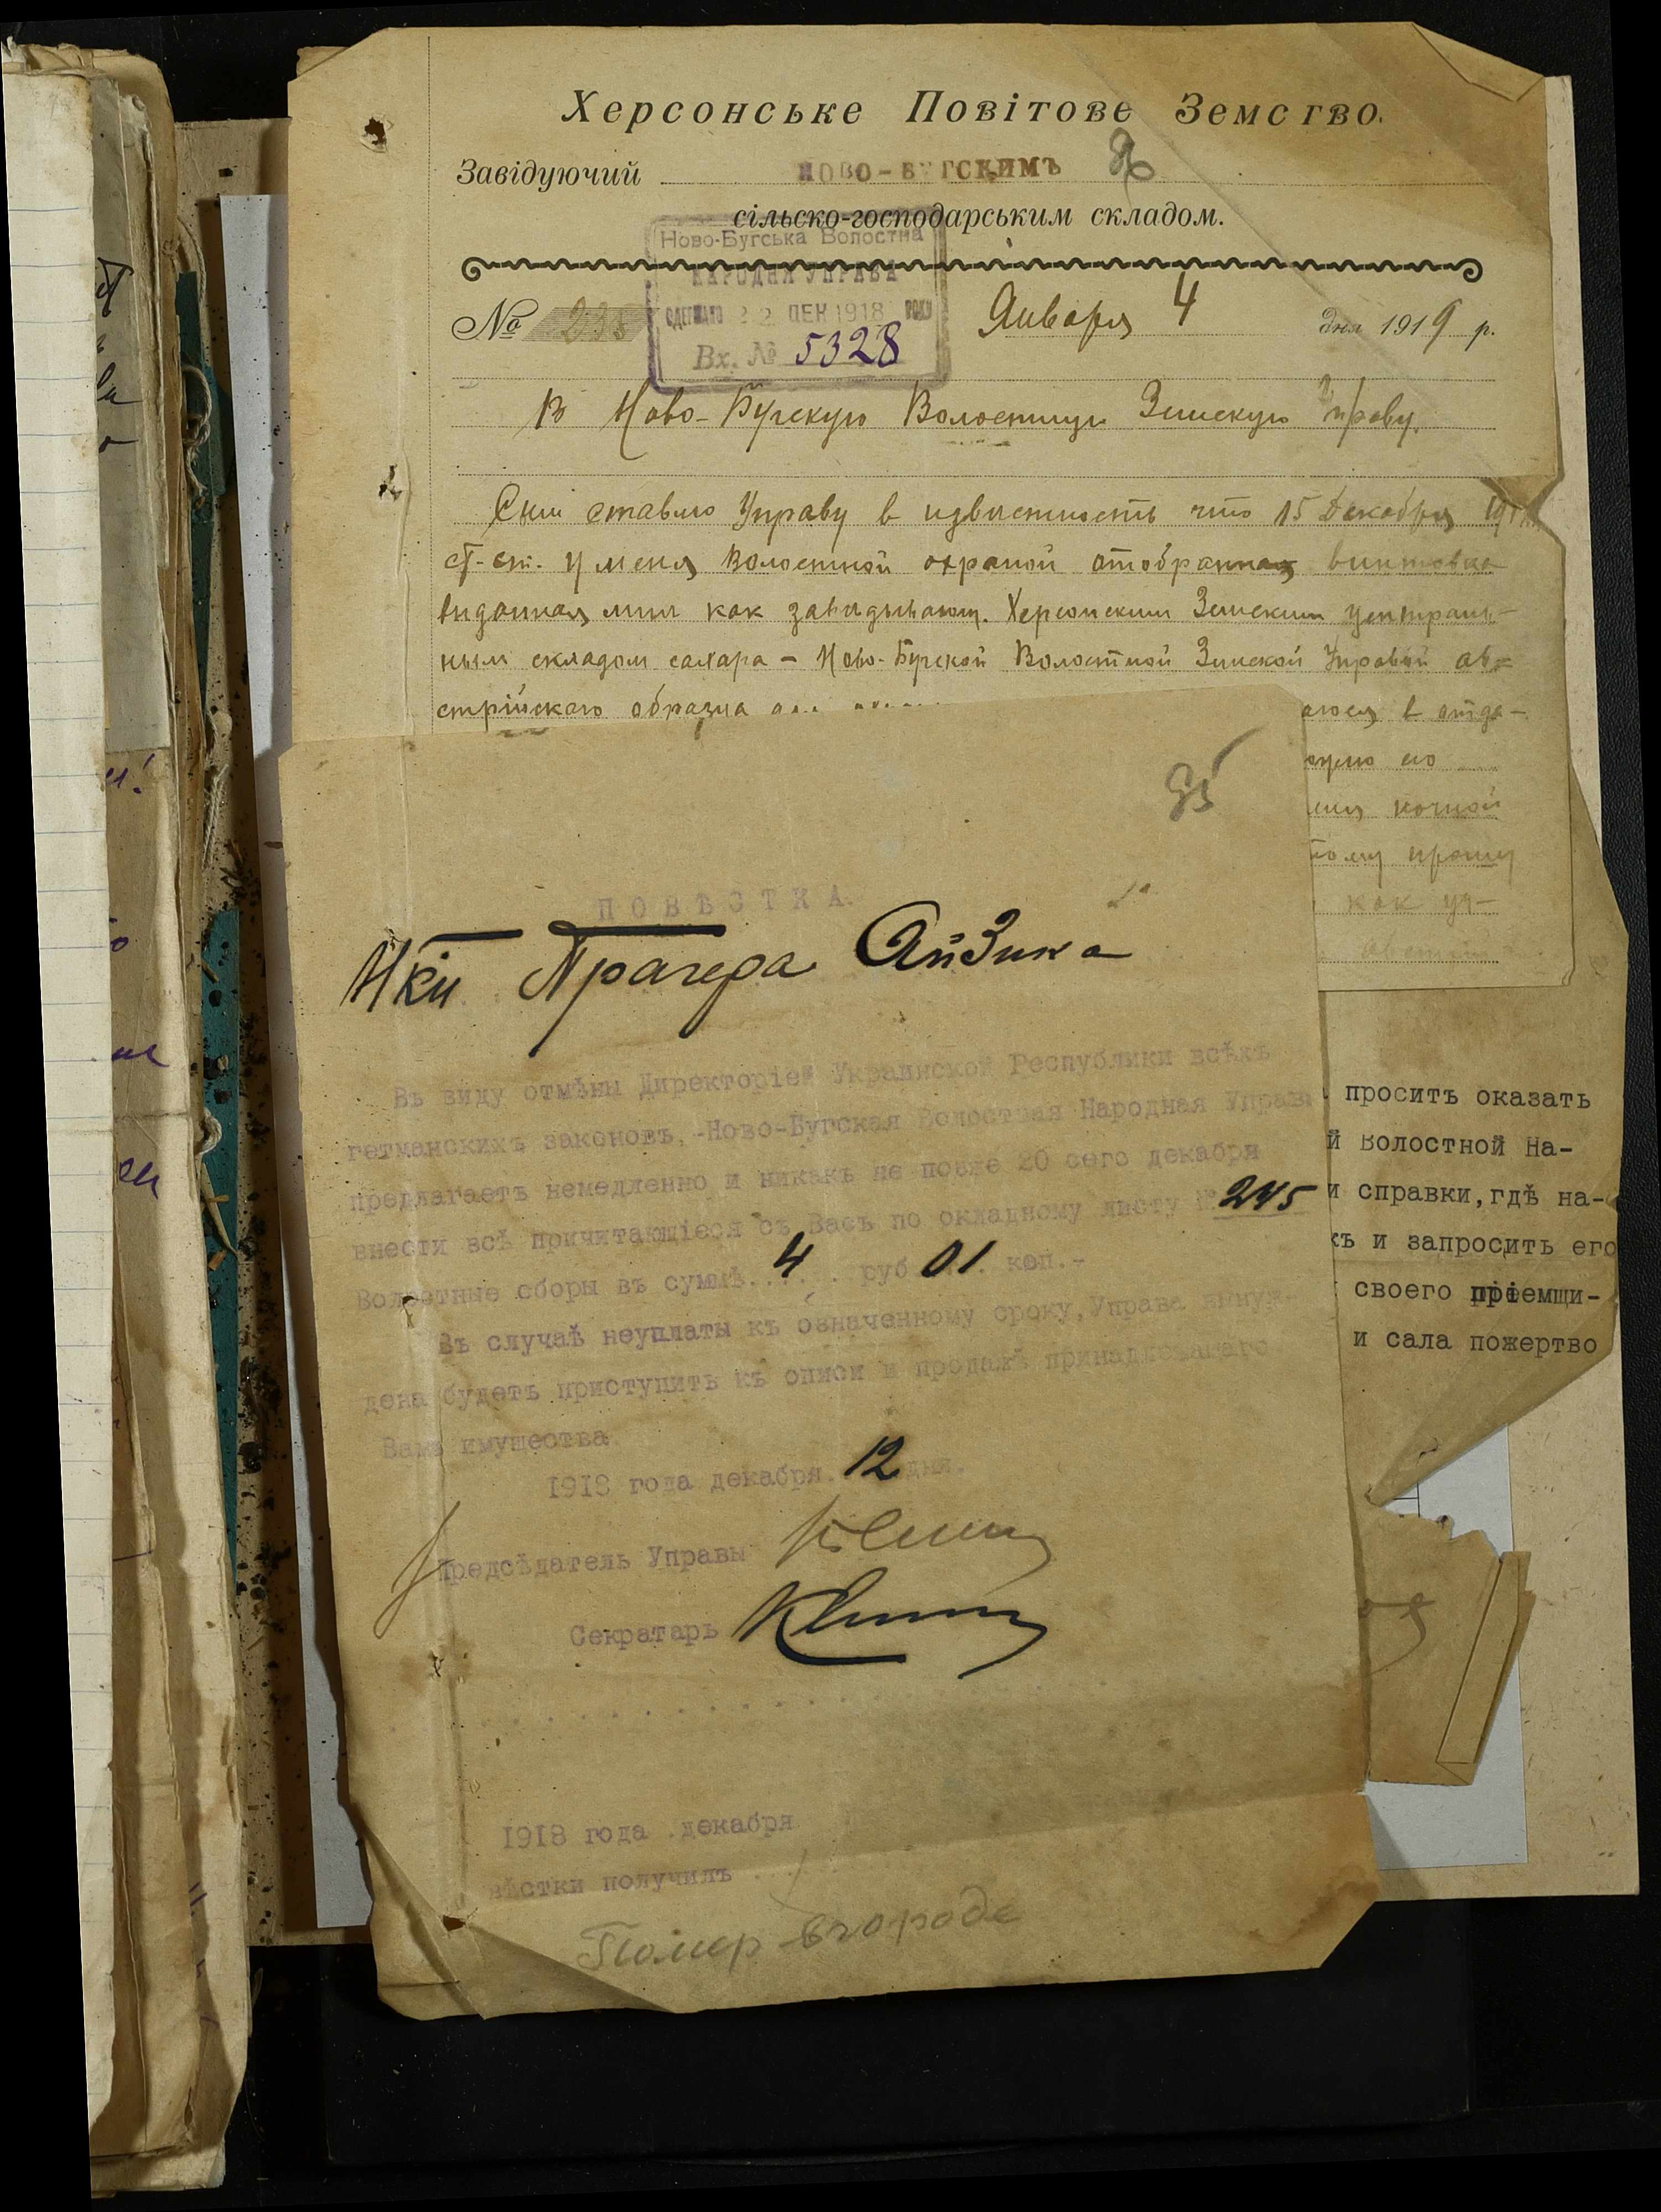 Херсонське Повітове Земство.
Завідуючий НОВО-БУГСКИМЪ
сільско-господарським складом.
Ново-Бугська Волостна
НАРОДНА УПРАВА
ОДЕРЖАНО 22 ДЕК 1918 РОКУ
Вх. № 5328
№ 238 Января 4 дня 1919 р.
В Ново-Бугскую Волостную Земскую Управу.
Сим ставлю Управу в известность что 15 Декабря
ст. ст. у меня Волостной охраной отобранная винтовка
виданная мне как заведывающ. Херсонским Земским централь-
ным складом сахара - Ново-Бугской Волостной Земской Управой ав-
стрійскаго образца в отда-
его
ночной
прошу
как уч-
95
ПОВѢСТКА.
Нки Прагера Айзика
Въ виду отмѣны Директоріей Украинской Республики всѣхъ
гетманскихъ законовъ, -Ново-Бугская Волостная Народная Управа
предлагаетъ немедленно и никакъ не позже 20 сего декабря
внести всѣ причитающіеся съ Васъ по окладному листу № 245
Волостные сборы въ суммѣ... 4 ... руб 01 . коп.-
Въ случаѣ неуплаты къ означенному сроку, Управа вынуж-
дена будетъ приступить къ описи и продажѣ принадлежащаго
Вамъ имущества
1918 года декабря. 12 дня.
Предсѣдатель Управы
Секратарь
1918 года .декабря
вѣстки получилъ ...
Помер в городе
просить оказать
й Волостной На-
и справки, гдѣ на-
къ и запросить его
своего пріемщи-
и сала пожертво